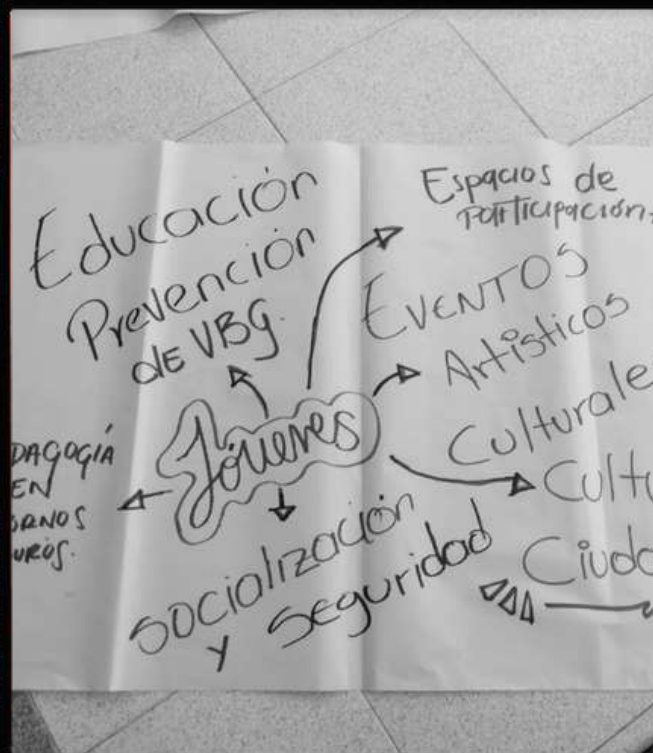 Educación
Prevención
de VBG.
Espacios de
Participación.
EVENTOS
Artísticos
Culturale
Cultu
Ciuda
Jóvenes
DAGOGÍA
EN
ORNOS
UROS.
Socialización
y Seguridad